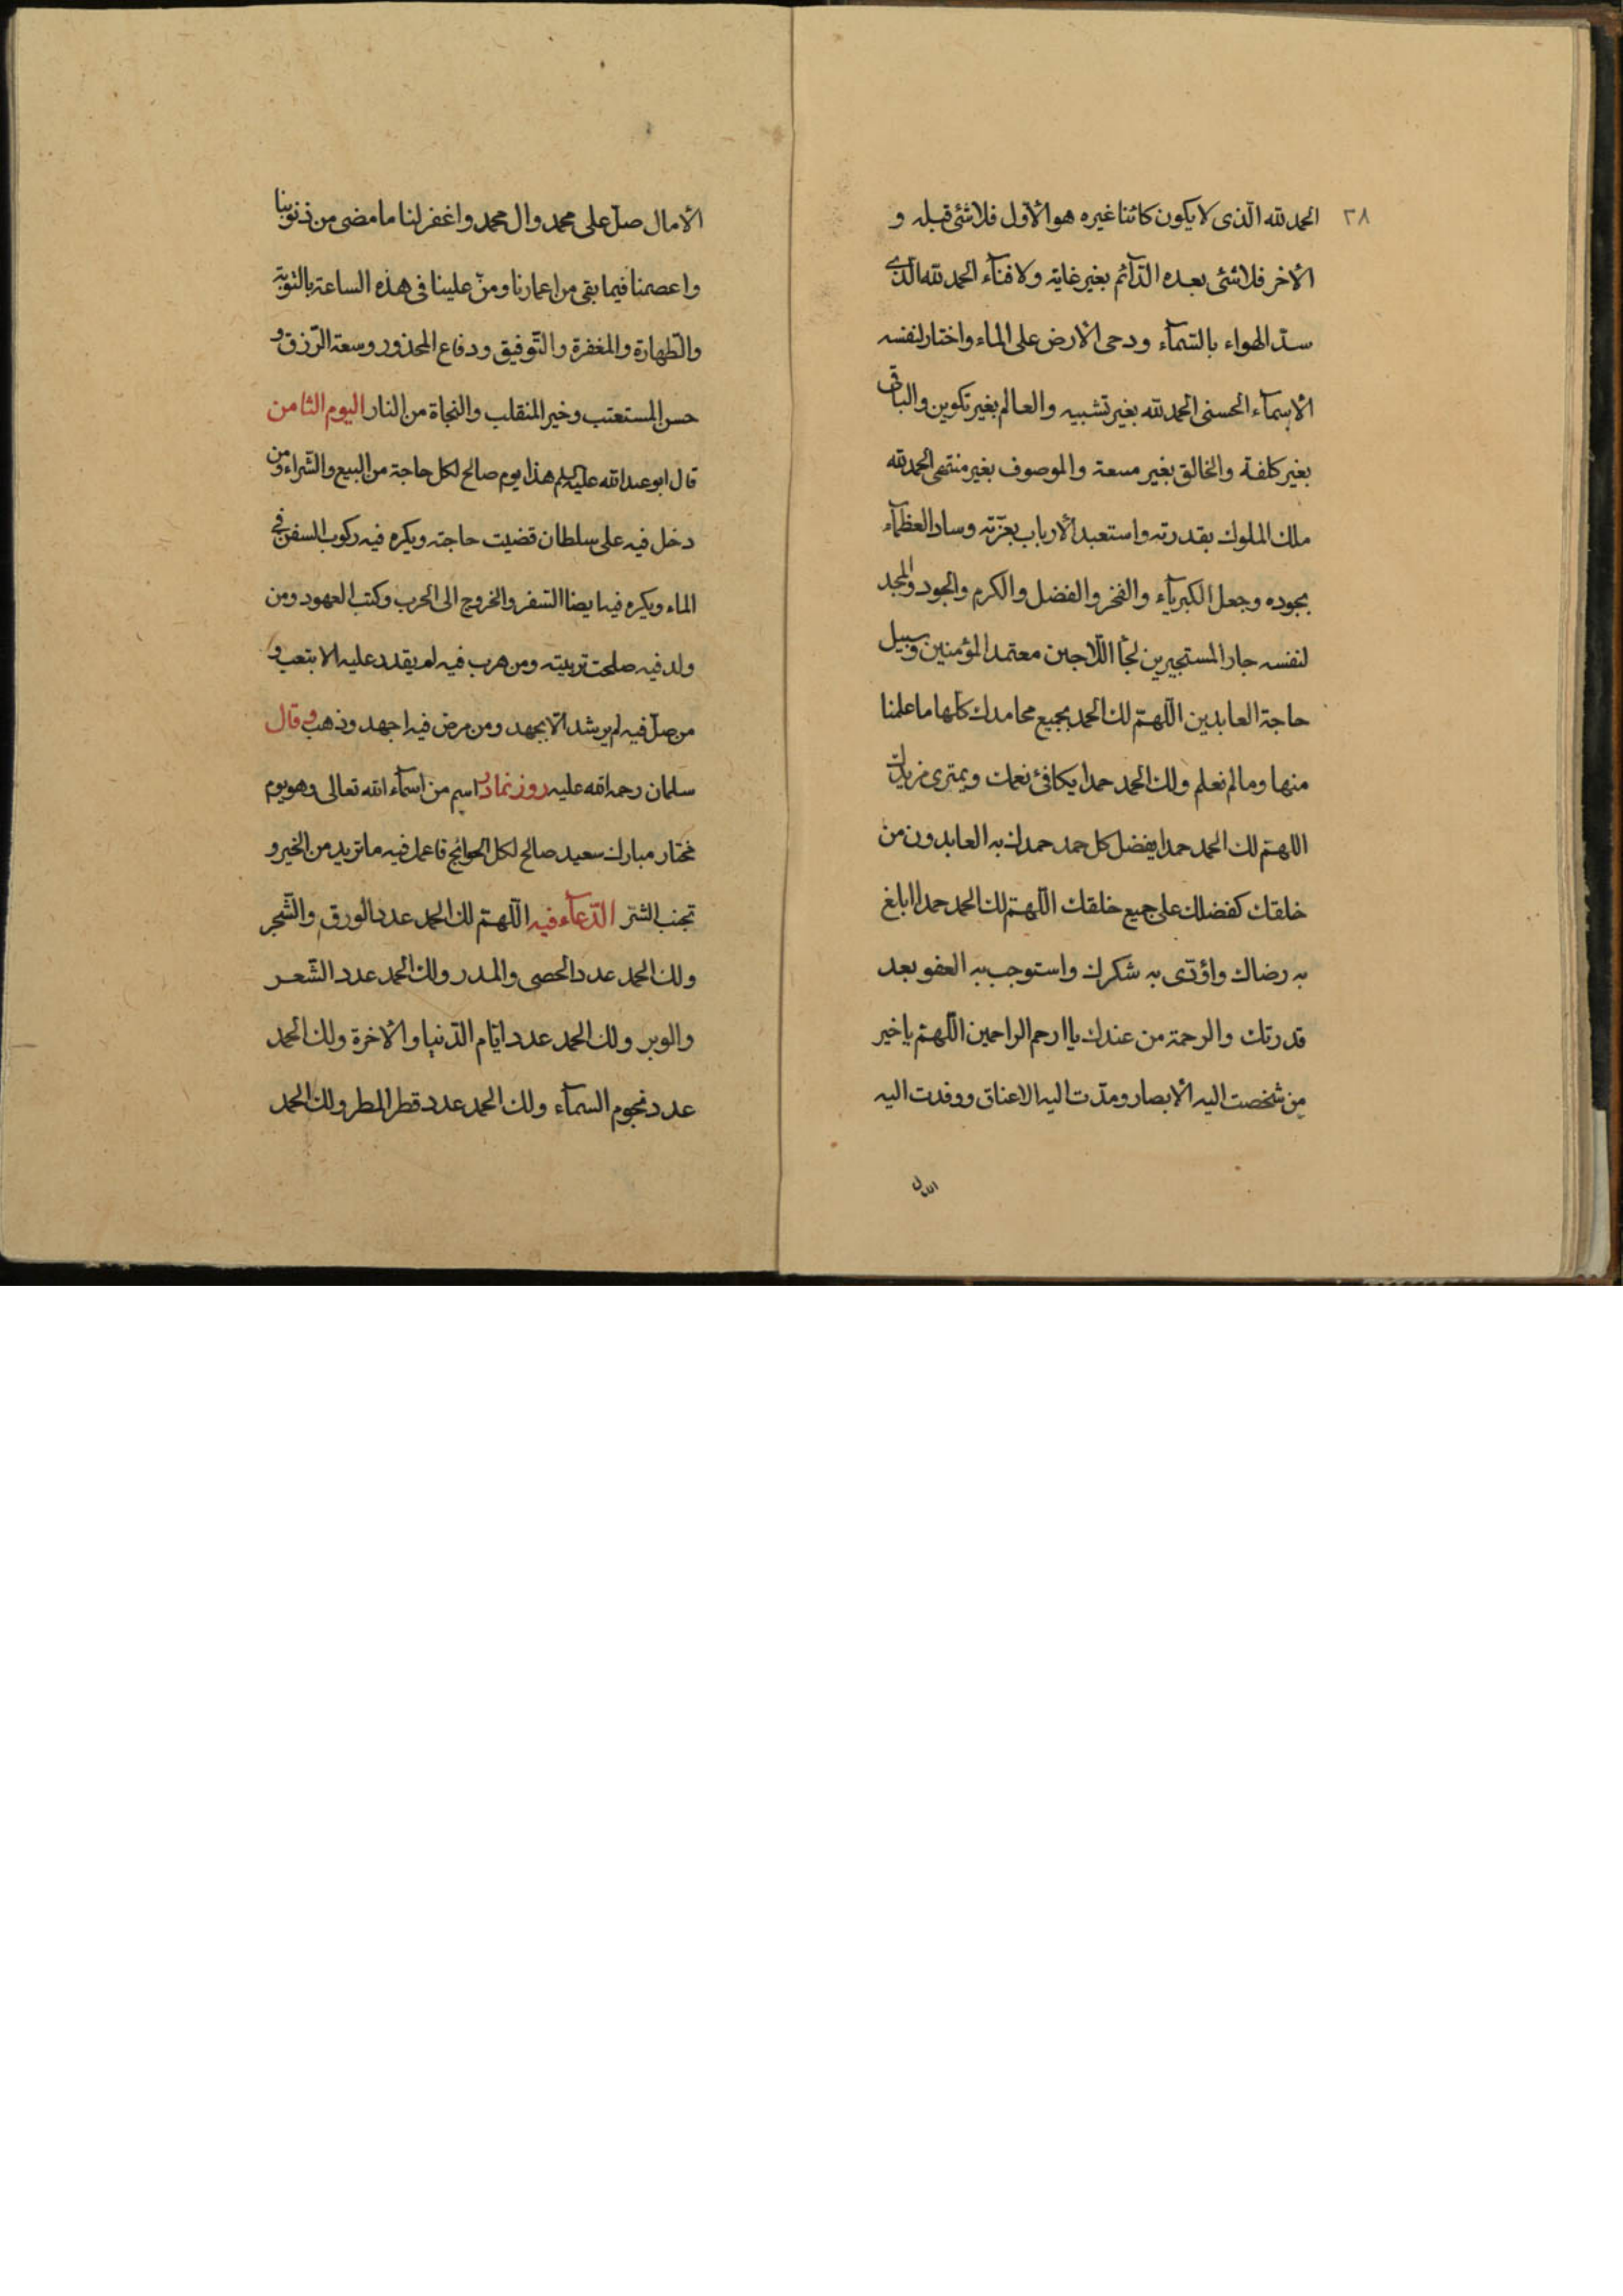 ٣٨
الحمد لله الّذى لا يكون كائنا غيره هو الأوّل فلا شئ قبله و
الأخر فلا شئ بعده الدّآئم بغير غاية ولا فنآء الحمد لله الّذى
سدّ الهواء بالسّمآء ودحى الأرض على الماء واختار لنفسه
الأسمآء الحسنى الحمد لله بغير تشبيه والعالم بغير تكوين والباقى
بغير كلفة والخالق بغير متعة والموصوف بغير منتهى الحمد لله
ملك الملوك بقدرته واستعبد الأرباب بعزّته وساد العظمآء
بجوده وجعل الكبريآء والفخر والفضل والكرم والجود والمجد
لنفسه جار المستجيرين لجأ اللّاجين معتمد المؤمنين وسبيل
حاجة العابدين اللّهمّ لك الحمد بجميع محامدك كلّها ما علمنا
منها وما لم نعلم ولك الحمد حمدا يكافئ نعمك ويمترى مزيدك
اللهمّ لك الحمد حمدا يفضل كل حمد حمدك به العابدون من
خلقك كفضلك على جميع خلقك اللّهمّ لك الحمد حمدا ابلغ
به رضاك واؤدّى به شكرك واستوجب به العفو بعد
قدرتك والرحمة من عندك يا ارحم الراحمين اللّهمّ يا خير
من شخصت اليه الأبصار ومدّت اليه الاعناق ووفدت اليه
الأمال صلّ على محمد وال محمد واغفر لنا ما مضى من ذنوبنا
واعصمنا فيما بقى من اعمارنا ومنّ علينا فى هذه الساعة بالتّوبة
والطّهارة والمغفرة والتّوفيق ودفاع المحذور وسعة الرّزق و
حسن المستعتب وخير المنقلب والنجاة من النار اليوم الثامن
قال ابو عبد الله عليه السلم هذا يوم صالح لكل حاجة من البيع والشّراء ومن
دخل فيه على سلطان قضيت حاجته ويكره فيه ركوب السفن فى
الماء ويكره فيه ايضا السّفر والخروج الى الحرب وكتب العهود ومن
ولد فيه صلحت تربيته ومن هرب فيه لم يقدر عليه الا بتعب و
من ضلّ فيه لم يرشد الّا بجهد ومن مرض فيه اجهد وذهب وقال
سلمان رحمه الله عليه روز نماد اسم من اسمآء الله تعالى وهو يوم
مختار مبارك سعيد صالح لكل الحوائج فاعمل فيه ما تريد من الخير و
تجنب الشرّ الدّعآء فيه اللّهمّ لك الحمد عدد الورق والشّجر
ولك الحمد عدد الحصى والمدر ولك الحمد عدد الشّعر
والوبر ولك الحمد عدد ايّام الدّنيا والأخرة ولك الحمد
عدد نجوم السمآء ولك الحمد عدد قطر المطر ولك الحمد